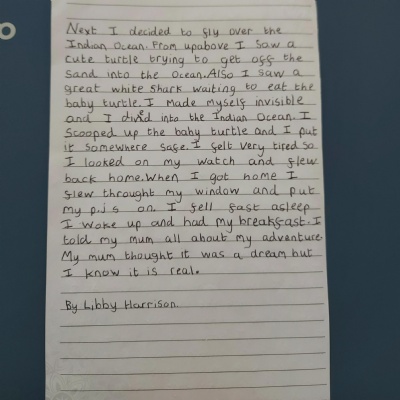 Next I decided to fly over the
Indian Ocean. From upabove I saw a
cute turtle trying to get off the
sand into the Ocean. Also I saw a
great white shark waiting to eat the
baby turtle. I made myself invisible
and I dived into the Indian Ocean. I
scooped up the baby turtle and I put
it somewhere safe. I felt very tired so
I looked on my watch and flew
back home. When I got home I
flew throught my window and put
my p.j s on. I fell fast asleep
I woke up and had my breakfast. I
told my mum all about my adventure.
My mum thought it was a dream but
I know it is real.
By Libby Harrison.